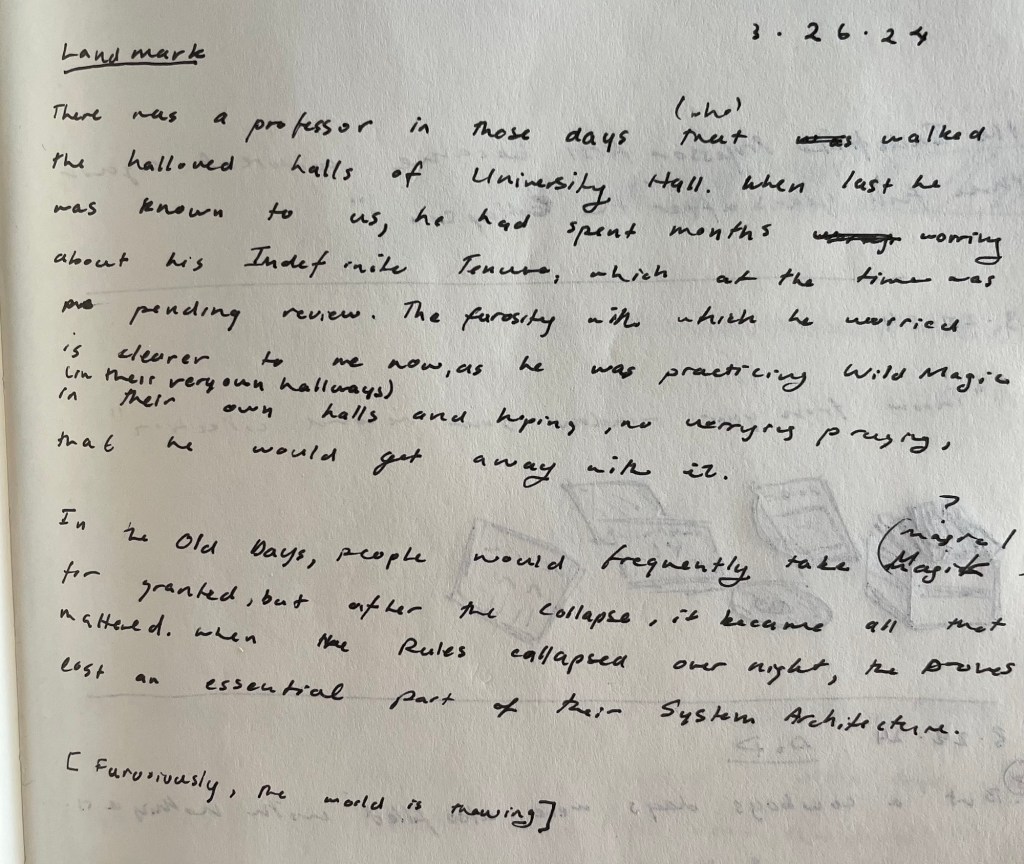 3.26.24
Landmark
(who)
There was a professor in those days that walked
the hallowed halls of University Hall. When last he
was known to us, he had spent months worring
about his Indefinite Tenure, which at the time was
pending review. The furosity with which he worried
is clearer to me now, as he was practicing Wild Magic
(in their very own hallways)
in their own halls and hoping, no praying,
that he would get away with it.
?
In the Old Days, people would frequently take Magik
for granted, but after the Collapse, it became all that
mattered. When the Rules collapsed over night, the
lost an essential part of their System Architecture.
[Furoviously, the world is thawing]